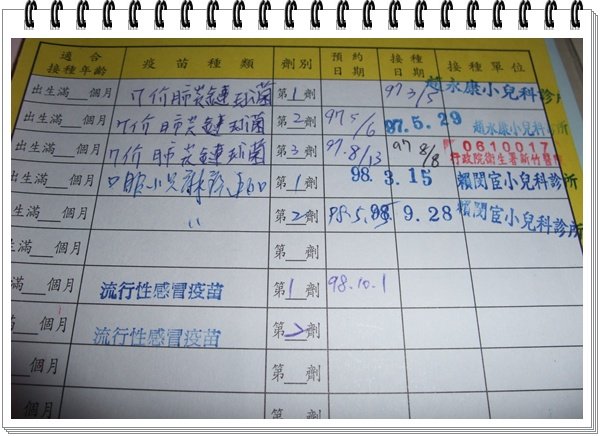 適合接種年齡 疫苗種類 劑別 預約日期 接種日期 接種單位
出生滿__個月 7价肺炎鏈球菌 第1劑 97 3/5 趙永康小兒科診所
出生滿__個月 7价肺炎鏈球菌 第2劑 97 5/6 97.5.29 趙永康小兒科診所
出生滿__個月 7价肺炎鏈球菌 第3劑 97.8/13 97 8/8 0610017 行政院衛生署新竹醫院
出生滿__個月 第1劑 98.3.15 賴閔宦小兒科診所
出生滿__個月 〃 第2劑 98. 9.28 賴閔宦小兒科診所
生滿__個月 第__劑
滿__個月 流行性感冒疫苗 第1劑 98.10.1
滿__個月 流行性感冒疫苗 第2劑
__個月 第__劑
個月 第__劑